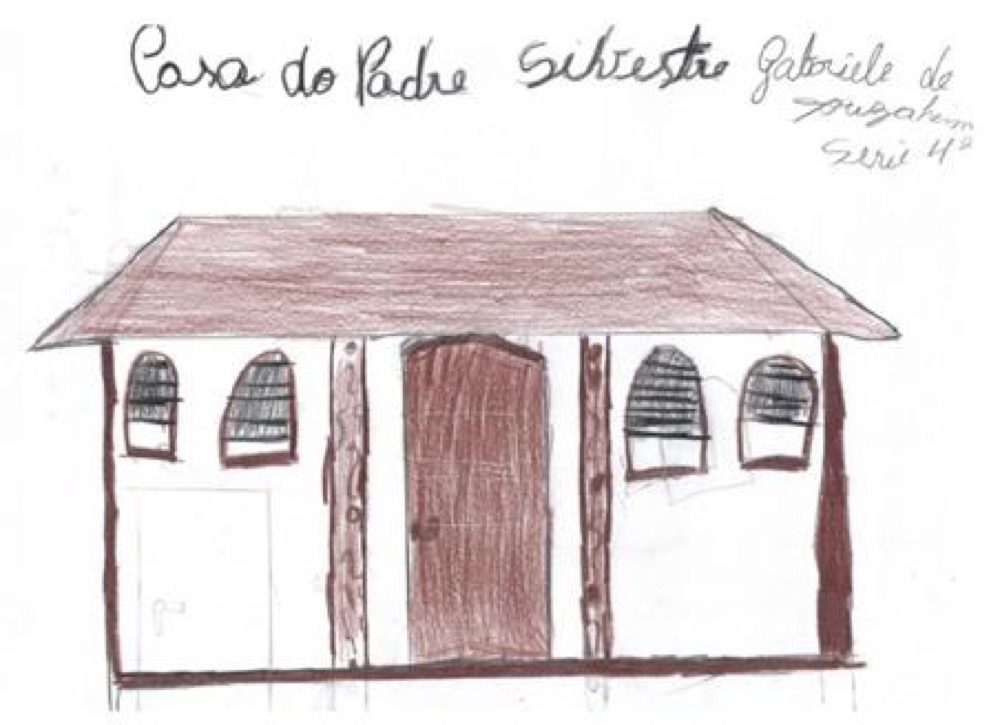 Casa do Padre Silvestre
Gabriele de
Serie 4ª